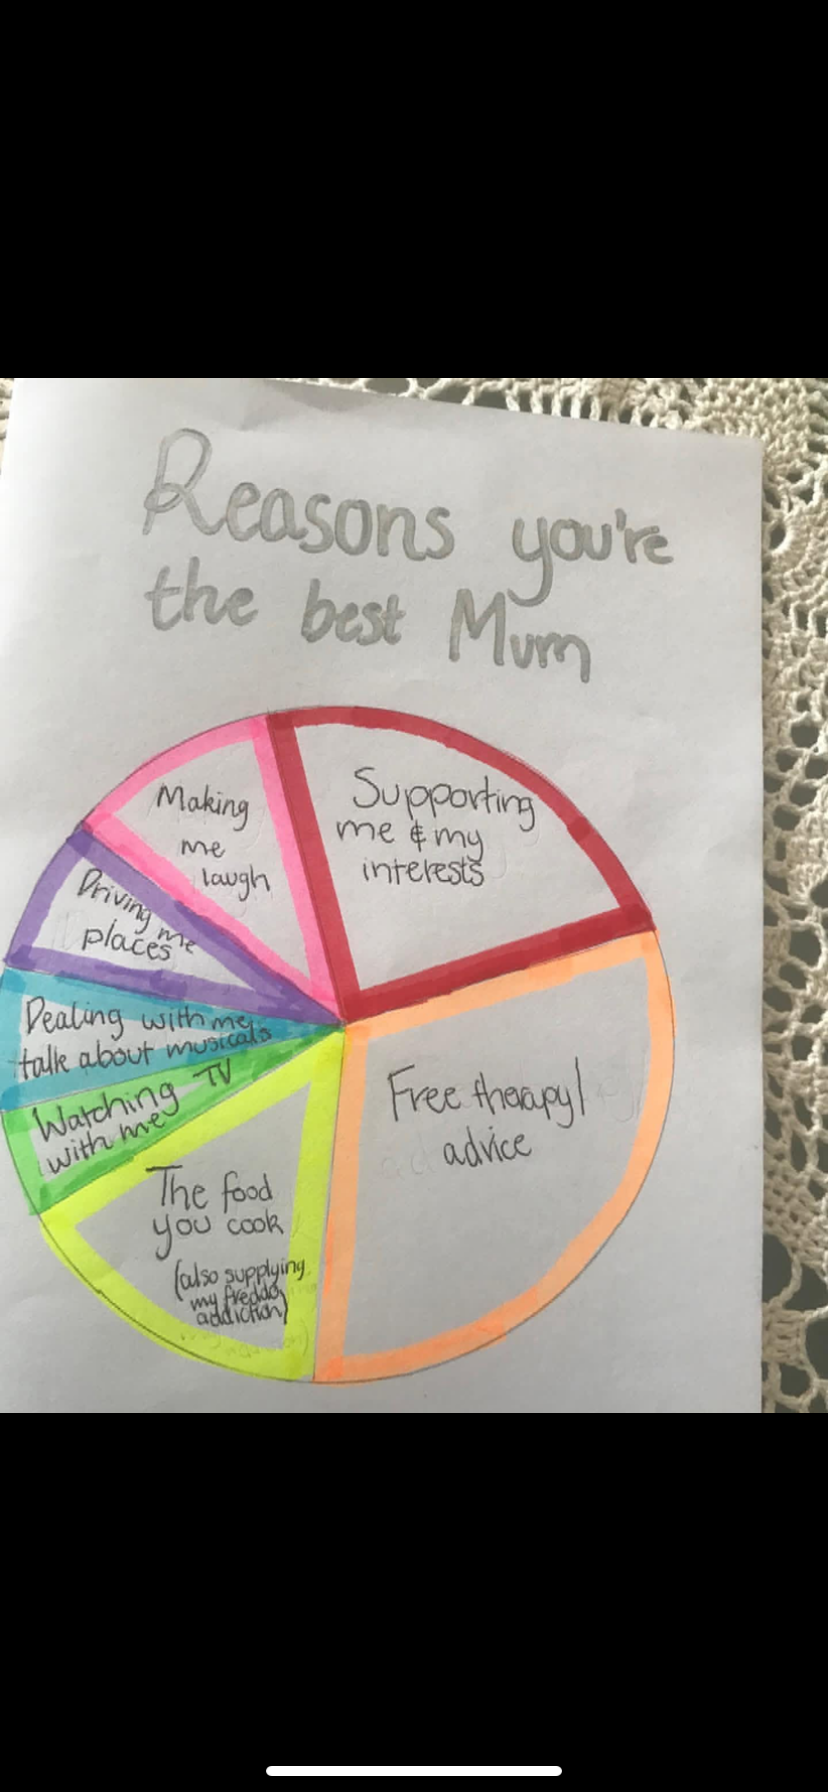 Reasons you're
the best Mum
Supporting
me & my
interests
Free therapy/
advice
The food
you cook
(also supplying
my freddo
addiction)
Watching TV
with me
Dealing with me
talk about musicals
Driving me
places
Making
me
laugh